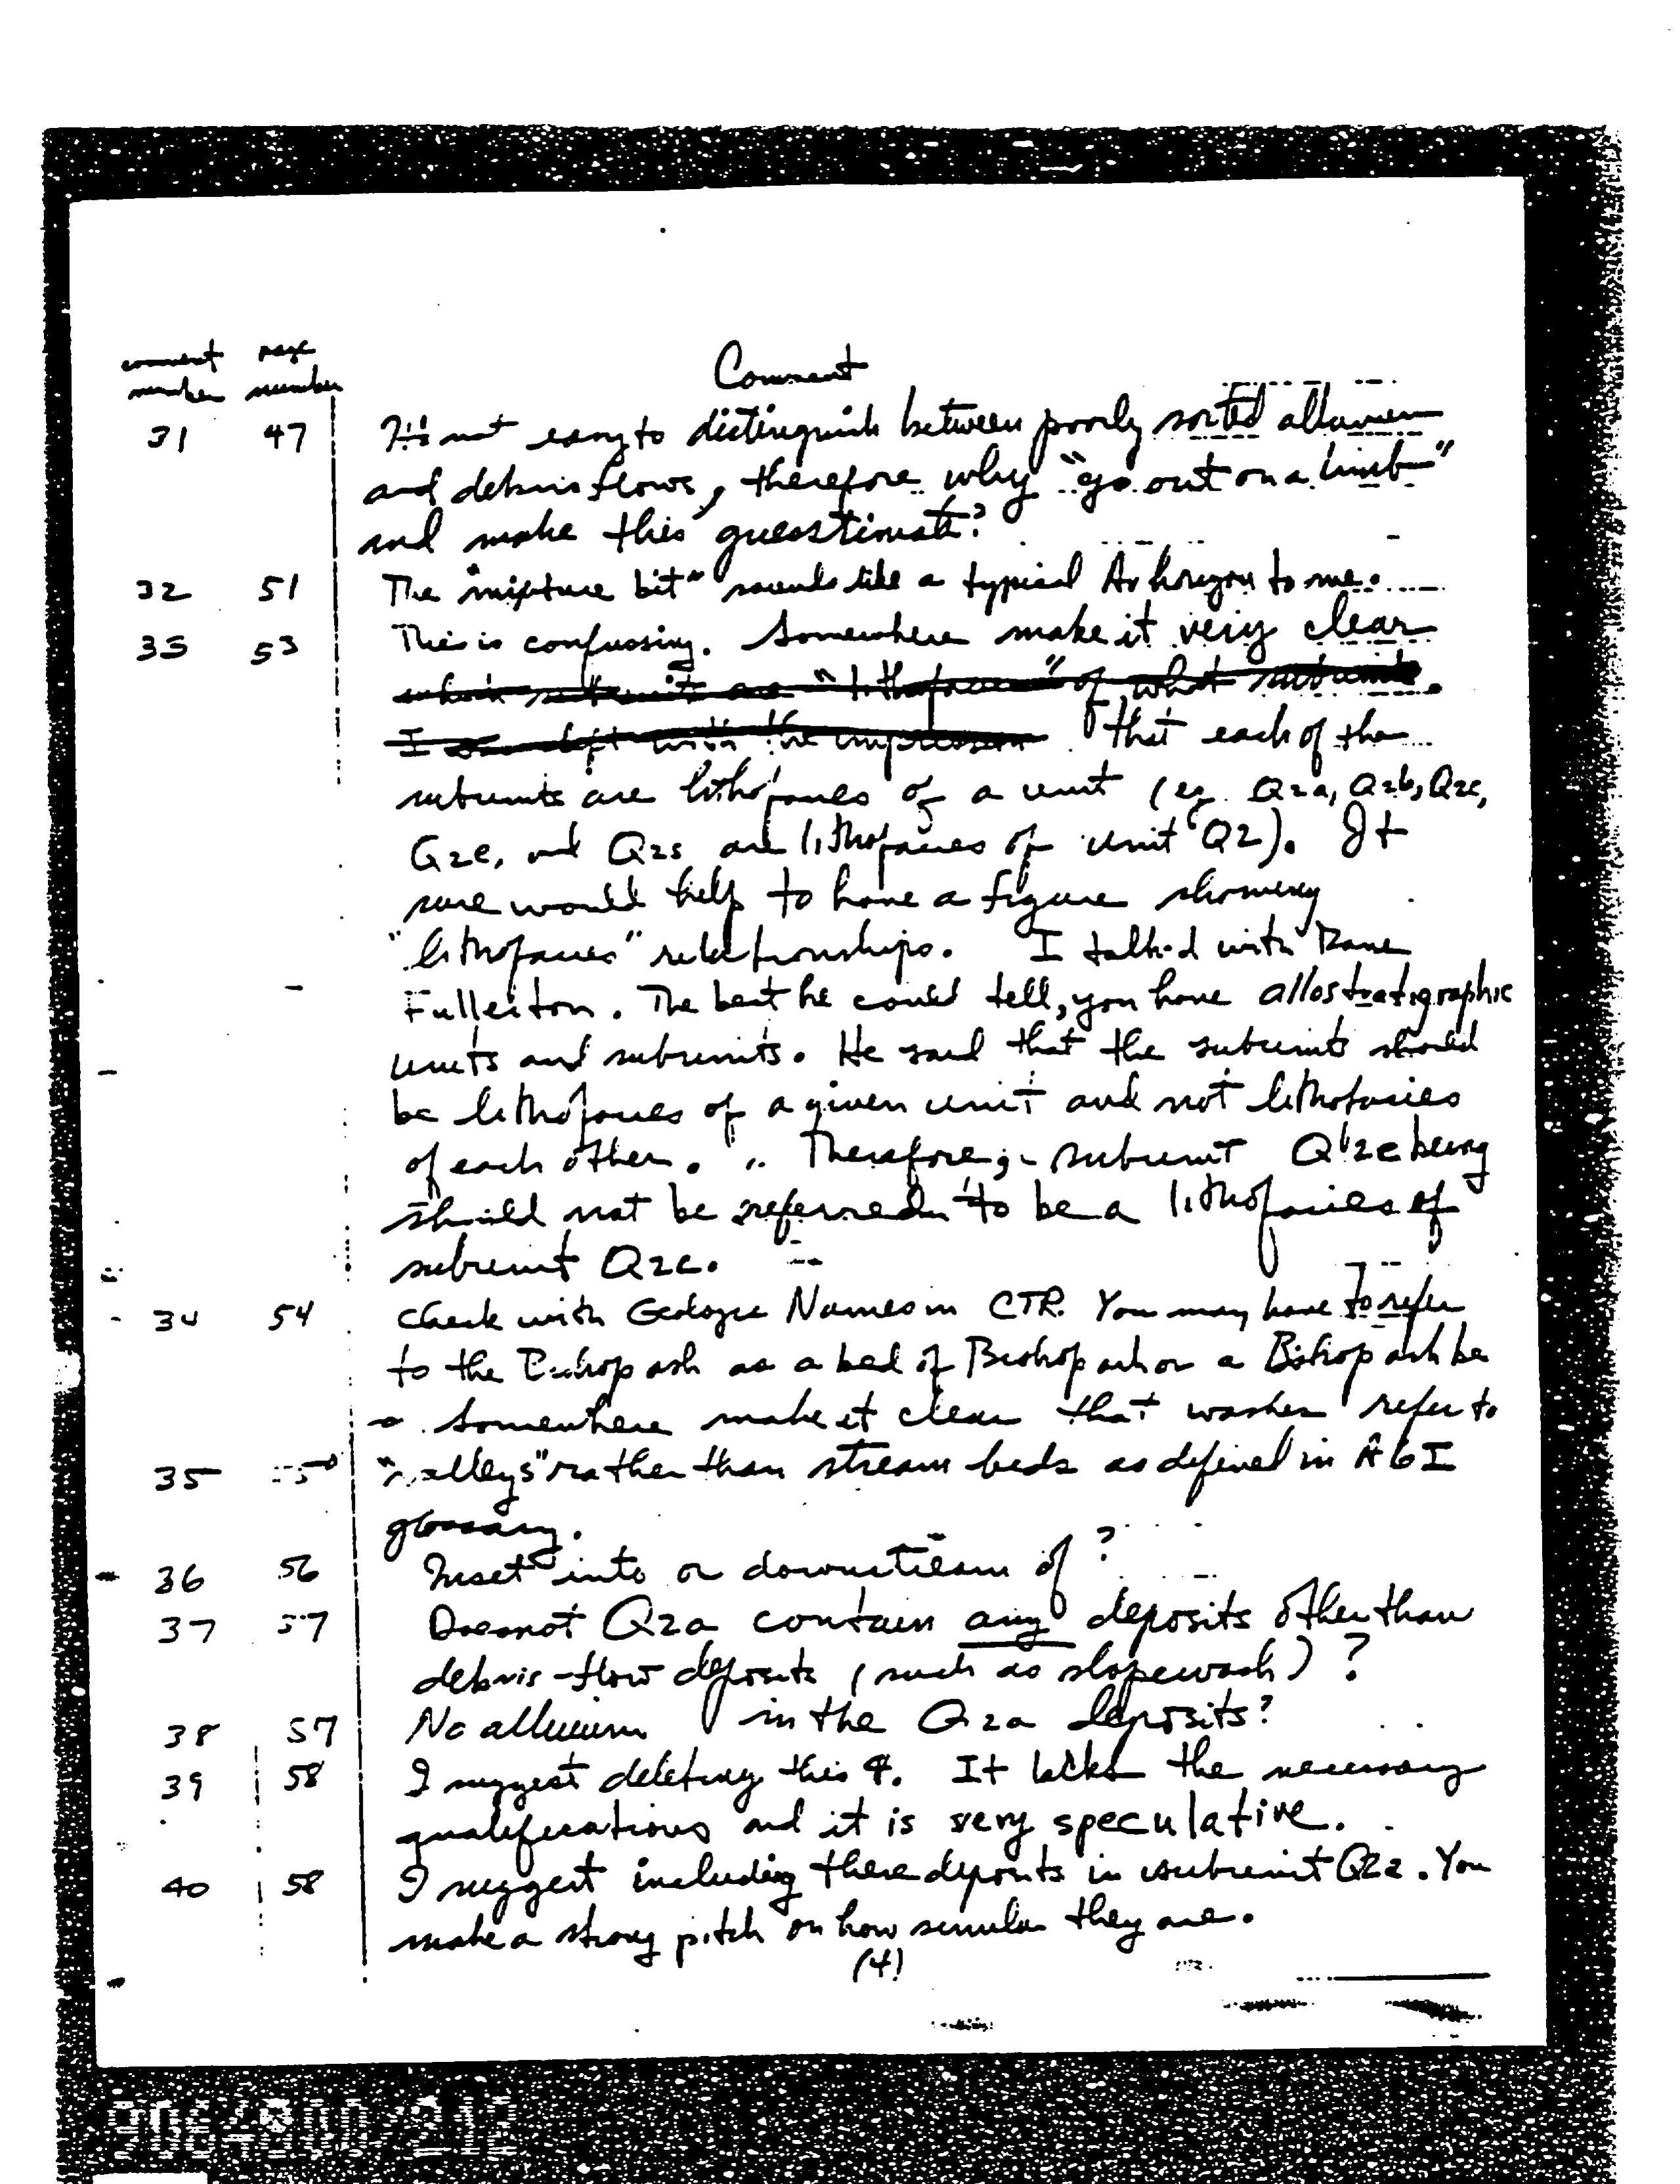 comment page
number number
Comment
31 47 It's not easy to distinguish between poorly sorted alluvium
and debris flows, therefore why "go out on a limb"
and make this guesstimate?
32 51 The "mixture bit" sounds like a typical Av horizon to me.
33 53 This is confussing. Somewhere make it very clear
which subunits are "lithofacies" of what subunits.
I am left with the impression that each of the
subunits are lithofacies of a unit (eg. Q2a, Q2b, Q2c,
Q2e, and Q2s are lithofacies of unit Q2). It
sure would help to have a figure showing
"lithofacies" relationships. I talked with Dave
Fullerton. The best he could tell, you have allostratigraphic
units and subunits. He said that the subunits should
be lithofacies of a given unit and not lithofacies
of each other. Therefore, subunit Q2e being
should not be referred to be a lithofacies of
subunit Q2c.
34 54 Check with Geologic Names in CTR. You may have to refer
to the Bishop ash as a bed of Bishop ash or a Bishop ash be
Somewhere make it clear that washes refer to
35 "valleys" rather than stream beds as defined in AGI
glossary.
36 56 Inset into or downstream of?
37 57 Does not Q2a contain any deposits other than
debris-flow deposits (such as slopewash)?
38 57 No alluvium in the Q2a deposits?
39 58 I suggest deleting this ¶. It lacks the necessary
qualifications and it is very speculative.
40 58 I suggest including these deposits in subunit Q2a. You
make a strong pitch on how similar they are.
(4)